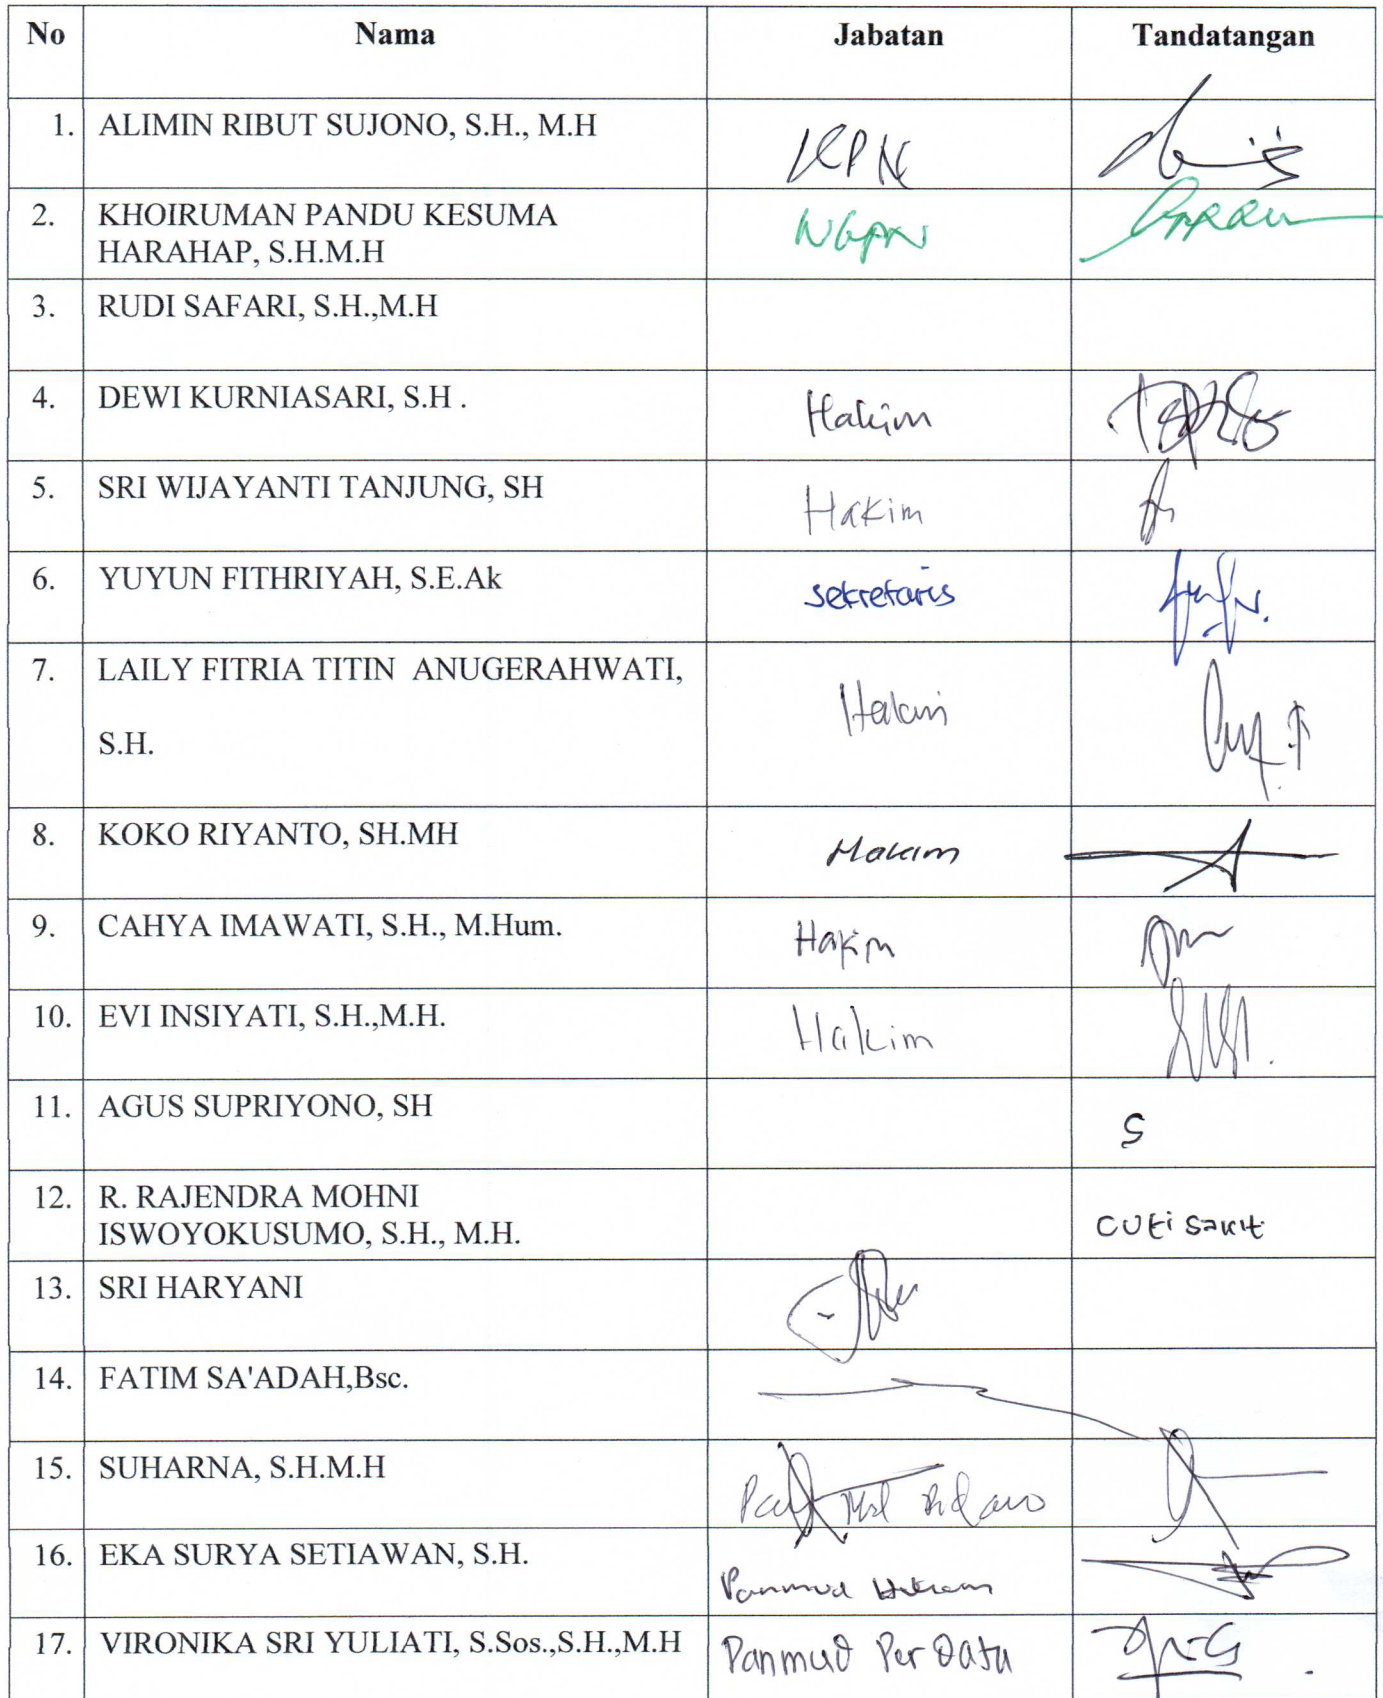 No Nama Jabatan Tandatangan
1. ALIMIN RIBUT SUJONO, S.H., M.H KPN
2. KHOIRUMAN PANDU KESUMA WKPN
HARAHAP, S.H.M.H
3. RUDI SAFARI, S.H.,M.H
4. DEWI KURNIASARI, S.H . Hakim
5. SRI WIJAYANTI TANJUNG, SH Hakim
6. YUYUN FITHRIYAH, S.E.Ak sekretaris
7. LAILY FITRIA TITIN ANUGERAHWATI, Hakim
S.H.
8. KOKO RIYANTO, SH.MH Hakim
9. CAHYA IMAWATI, S.H., M.Hum. Hakim
10. EVI INSIYATI, S.H.,M.H. Hakim
11. AGUS SUPRIYONO, SH S
12. R. RAJENDRA MOHNI cuti sakit
ISWOYOKUSUMO, S.H., M.H.
13. SRI HARYANI
14. FATIM SA'ADAH,Bsc.
15. SUHARNA, S.H.M.H
16. EKA SURYA SETIAWAN, S.H. Panmud Hukum
17. VIRONIKA SRI YULIATI, S.Sos.,S.H.,M.H Panmud Perdata